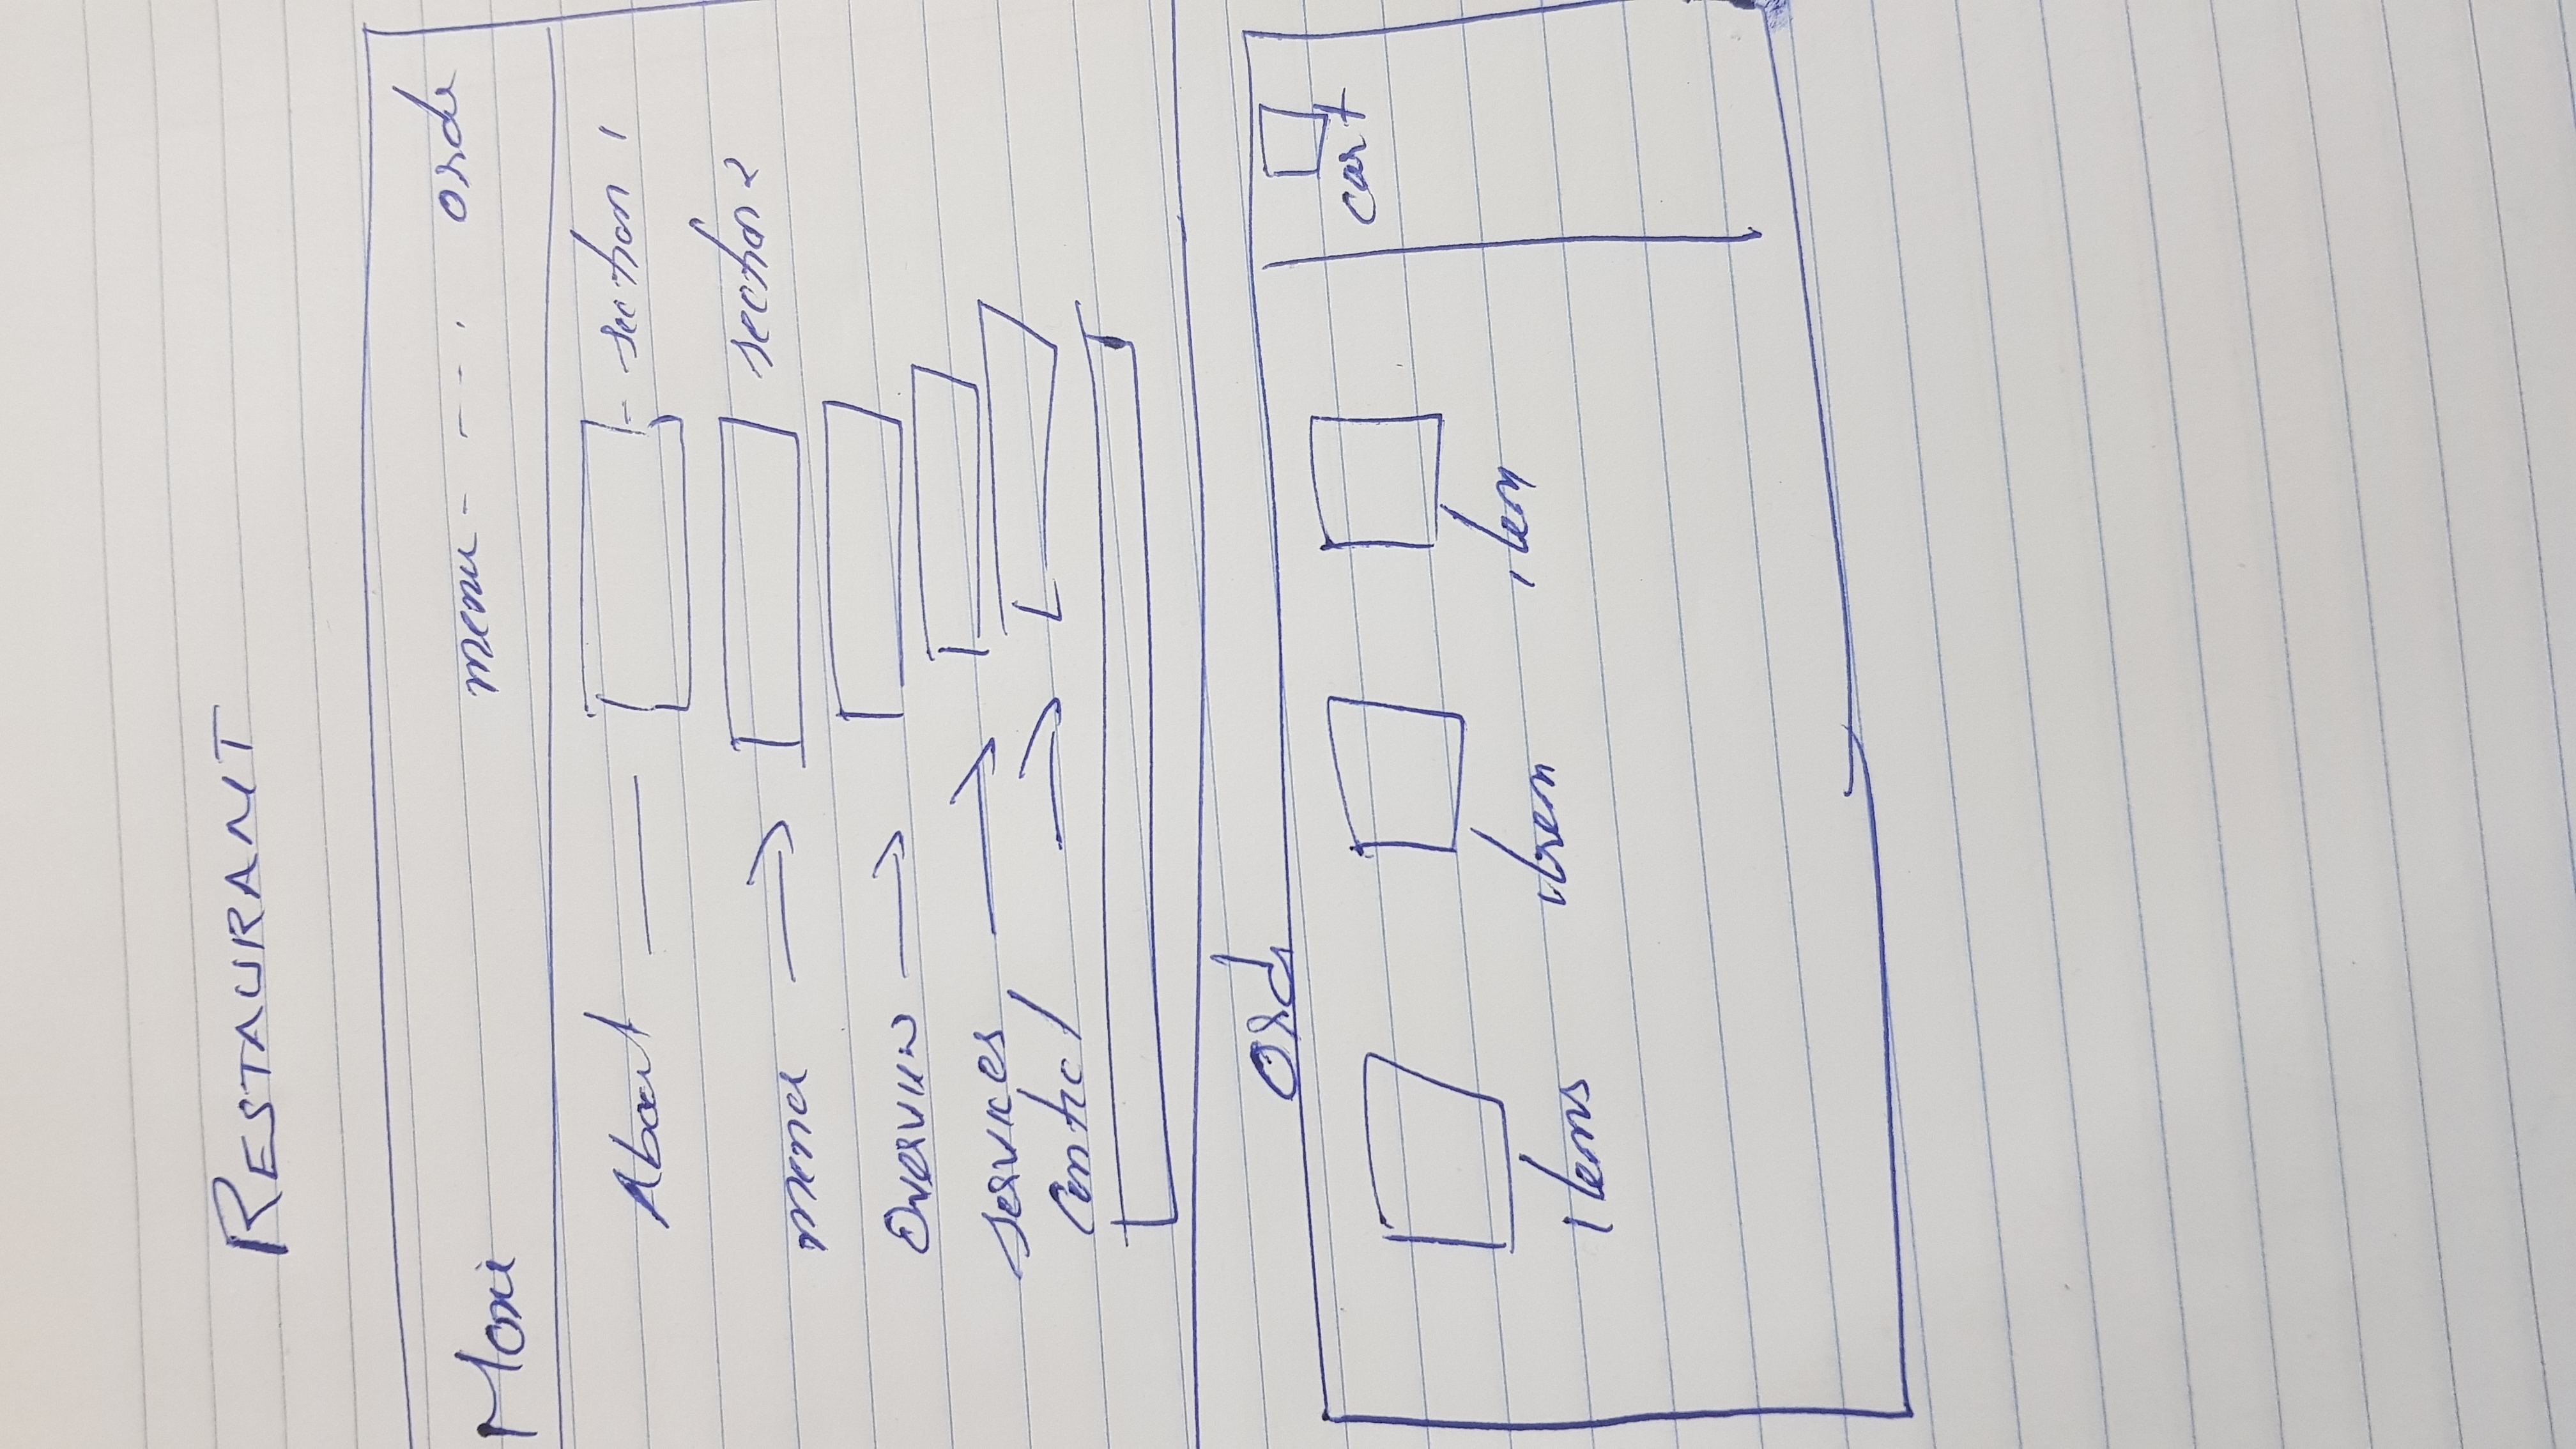 RESTAURANT
Moxie menu - - - - . orde
About section 1
menu section 2
Overview
services
Contact
Orde
cart
items item item